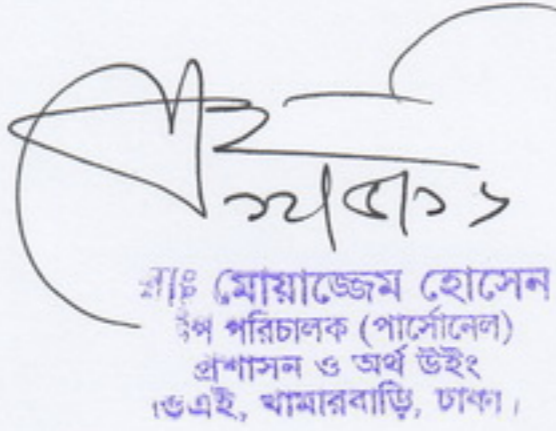 মোয়াজ্জেম হোসেন
উপ পরিচালক (পার্সোনেল)
প্রশাসন ও অর্থ উইং
ডিএই, খামারবাড়ি, ঢাকা।